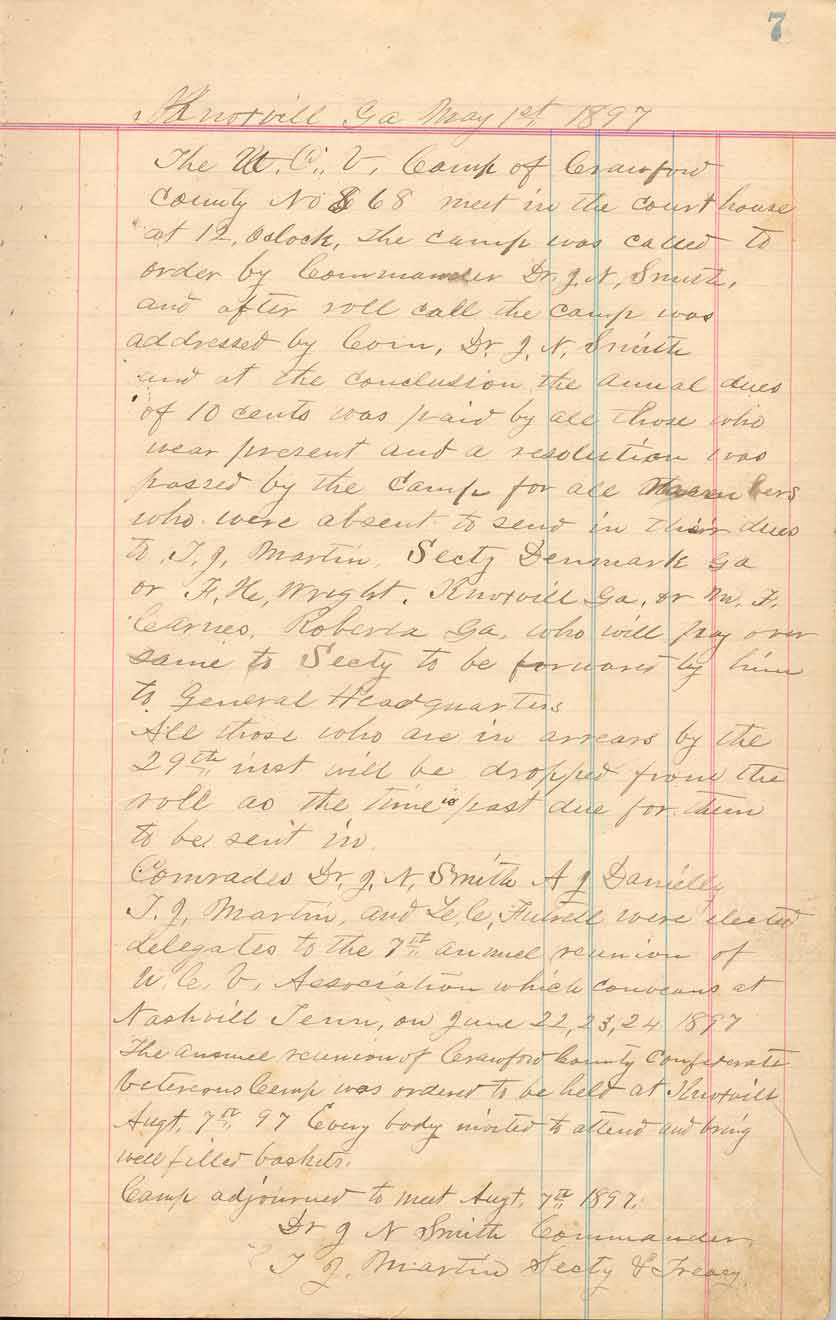 7
Knoxvill Ga May 1st 1897
The U. C. V. Camp of Crawford
County No 868 meet in the court house
at 12, Oclock, The camp was called to
order by Commander Dr. J. N. Smith,
and after roll call the camp was
addressed by Com, Dr. J. N. Smith
and at the conclusion the anual dues
of 10 cents was paid by all those who
wear present and a resolution was
passed by the Camp for all members
who were absent to send in their dues
to T. J. Martin, Secty Denmark Ga
or F. H. Wright, Knoxvill Ga, or M. F.
Carnes, Roberta Ga, who will pay over
same to Secty to be forward by him
to General Headquarters
All those who are in arrears by the
29th inst will be dropped from the
roll as the time is past due for them
to be sent in
Comrades Dr. J. N. Smith A J Danielly
T. J. Martin, and Futrell were elected
delegates to the 7th annuel reunion of
U. C. V. Association which conveans at
Nashvill Tenn, on June 22, 23, 24 1897
The annuel reunion of Crawford County Confederate
Vetereons Camp was ordered to be held at Knoxvill
Augt. 7th 97 Every body invited to attend and bring
well filled baskets.
Camp adjourned to meet Augt. 7th 1897.
Dr J N Smith Commander
T J. Martin Secty & Treasy.